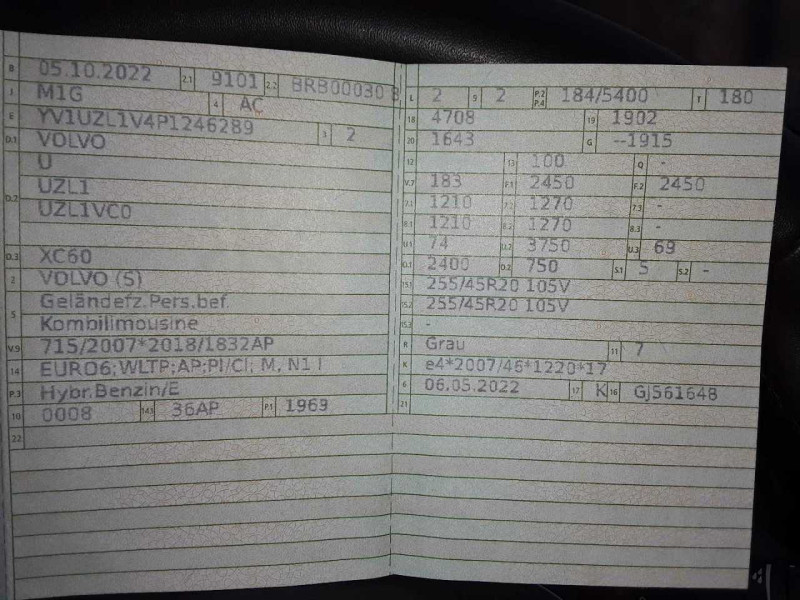 B 05.10.2022 2.1 9101 2.2 BRB00030 8
J M1G 4 AC
E YV1UZL1V4P1246289 3 2
D.1 VOLVO
D.2 U
UZL1
UZL1VC0
D.3 XC60
2 VOLVO (S)
5 Geländefz.Pers.bef.
Kombilimousine
V.9 715/2007*2018/1832AP
14 EURO6;WLTP;AP;PI/CI; M, N1 I
P.3 Hybr.Benzin/E
10 0008 14.1 36AP P.1 1969
22
L 2 9 2 P.2 P.4 184/5400 T 180
18 4708 19 1902
20 1643 G --1915
12 13 100 Q -
V.7 183 F.1 2450 F.2 2450
7.1 1210 7.2 1270 7.3 -
8.1 1210 8.2 1270 8.3 -
U.1 74 U.2 3750 U.3 69
O.1 2400 O.2 750 S.1 5 S.2 -
15.1 255/45R20 105V
15.2 255/45R20 105V
15.3 -
R Grau 11 7
K e4*2007/46*1220*17
6 06.05.2022 17 K 16 GJ561648
21